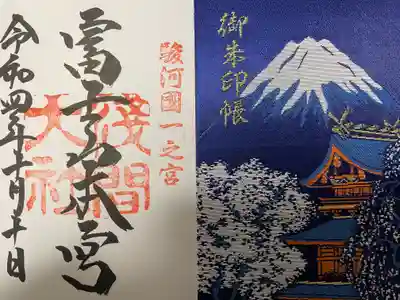 駿河國一之宮
富士山本宮
浅間大社
令和四年十一月十日
御朱印帳